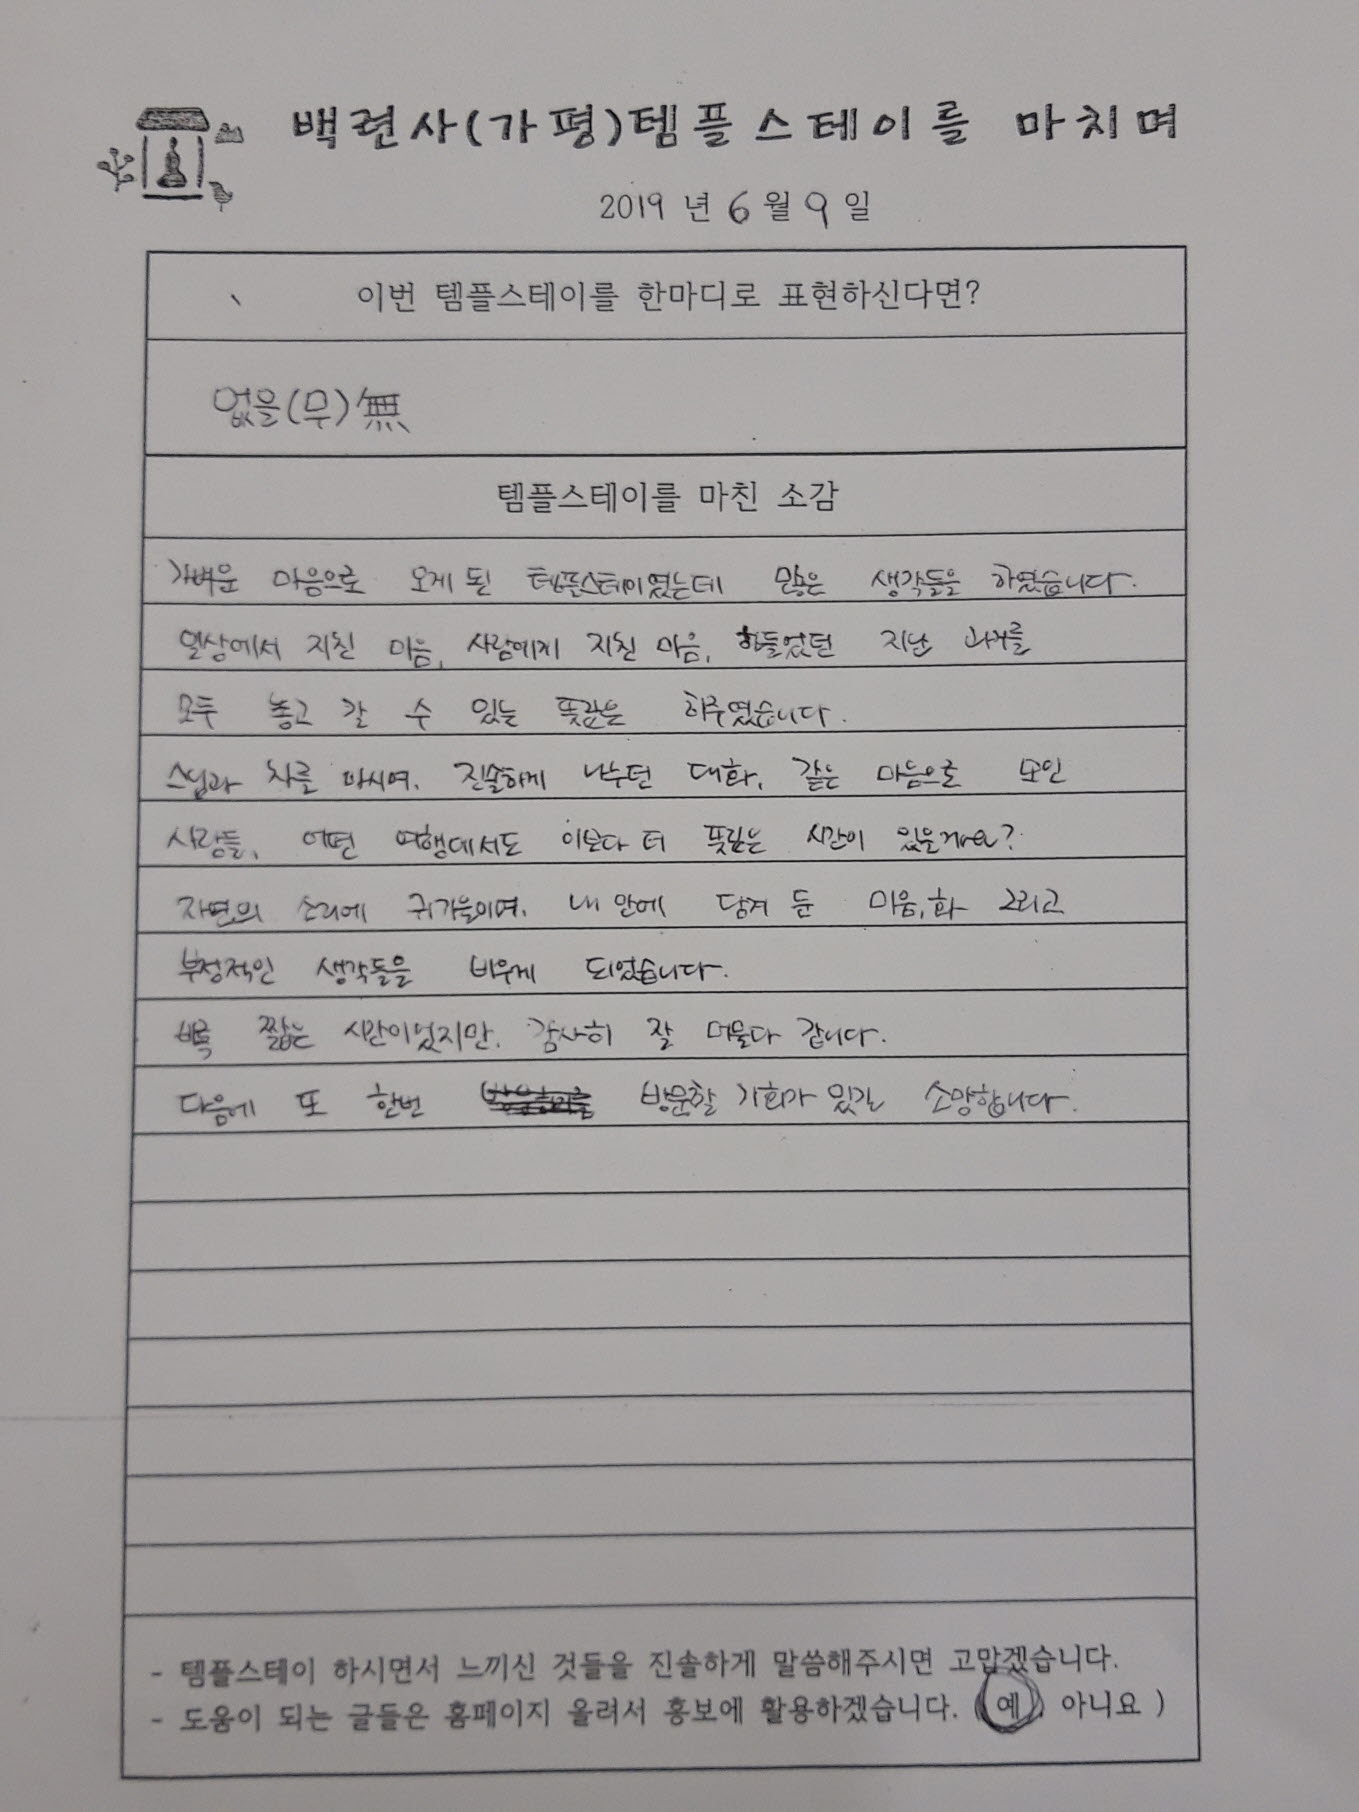 백련사(가평)템플스테이를 마치며
2019 년 6 월 9 일
이번 템플스테이를 한마디로 표현하신다면?
없을(무) 無
템플스테이를 마친 소감
가벼운 마음으로 오게 된 템플스테이였는데 많은 생각들을 하였습니다.
일상에서 지친 마음, 사람에게 지친 마음, 힘들었던 지난 과거를
모두 놓고 갈 수 있는 뜻깊은 하루였습니다.
스님과 차를 마시며, 진솔하게 나누던 대화, 같은 마음으로 모인
사람들, 어떤 여행에서도 이보다 더 뜻깊은 시간이 있을까요?
자연의 소리에 귀기울이며, 내 안에 담겨 둔 미움, 화 그리고
부정적인 생각들을 비우게 되었습니다.
비록 짧은 시간이었지만, 감사히 잘 머물다 갑니다.
다음에 또 한번 방문할 기회가 있길 소망합니다.
- 템플스테이 하시면서 느끼신 것들을 진솔하게 말씀해주시면 고맙겠습니다.
- 도움이 되는 글들은 홈페이지 올려서 홍보에 활용하겠습니다. ( 예 , 아니요 )